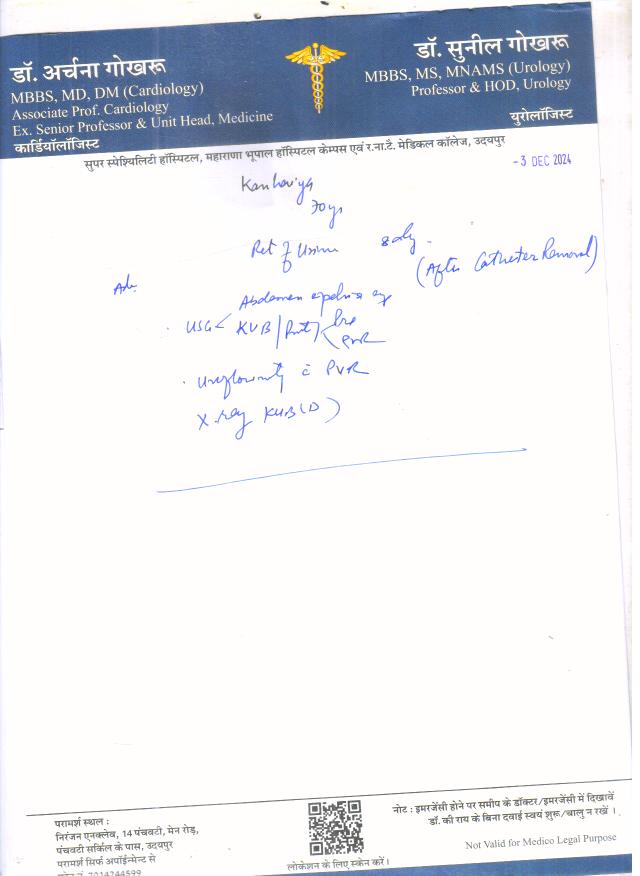 डॉ. अर्चना गोखरू
MBBS, MD, DM (Cardiology)
Associate Prof. Cardiology
Ex. Senior Professor & Unit Head, Medicine
कार्डियॉलॉजिस्ट
डॉ. सुनील गोखरू
MBBS, MS, MNAMS (Urology)
Professor & HOD, Urology
युरोलॉजिस्ट
सुपर स्पेश्यिलिटी हॉस्पिटल, महाराणा भूपाल हॉस्पिटल कैम्पस एवं र.ना.टै. मेडिकल कॉलेज, उदयपुर
- 3 DEC 2024
Kanhaiya
70y
Ret of Urine
(After Catheter Removal)
Adv.
Abdomen
USG KUB / Prost pre
PVR
Uroflowmetry c̄ PVR
X-ray KUB (D)
परामर्श स्थल :
निरंजन एनक्लेव, 14 पंचवटी, मेन रोड़,
पंचवटी सर्किल के पास, उदयपुर
परामर्श सिर्फ अपॉईन्मेन्ट से
7014244599
लोकेशन के लिए स्केन करें।
नोट : इमरजेंसी होने पर समीप के डॉक्टर/इमरजेंसी में दिखावें
डॉ. की राय के बिना दवाई स्वयं शुरू/चालु न रखें ।
Not Valid for Medico Legal Purpose